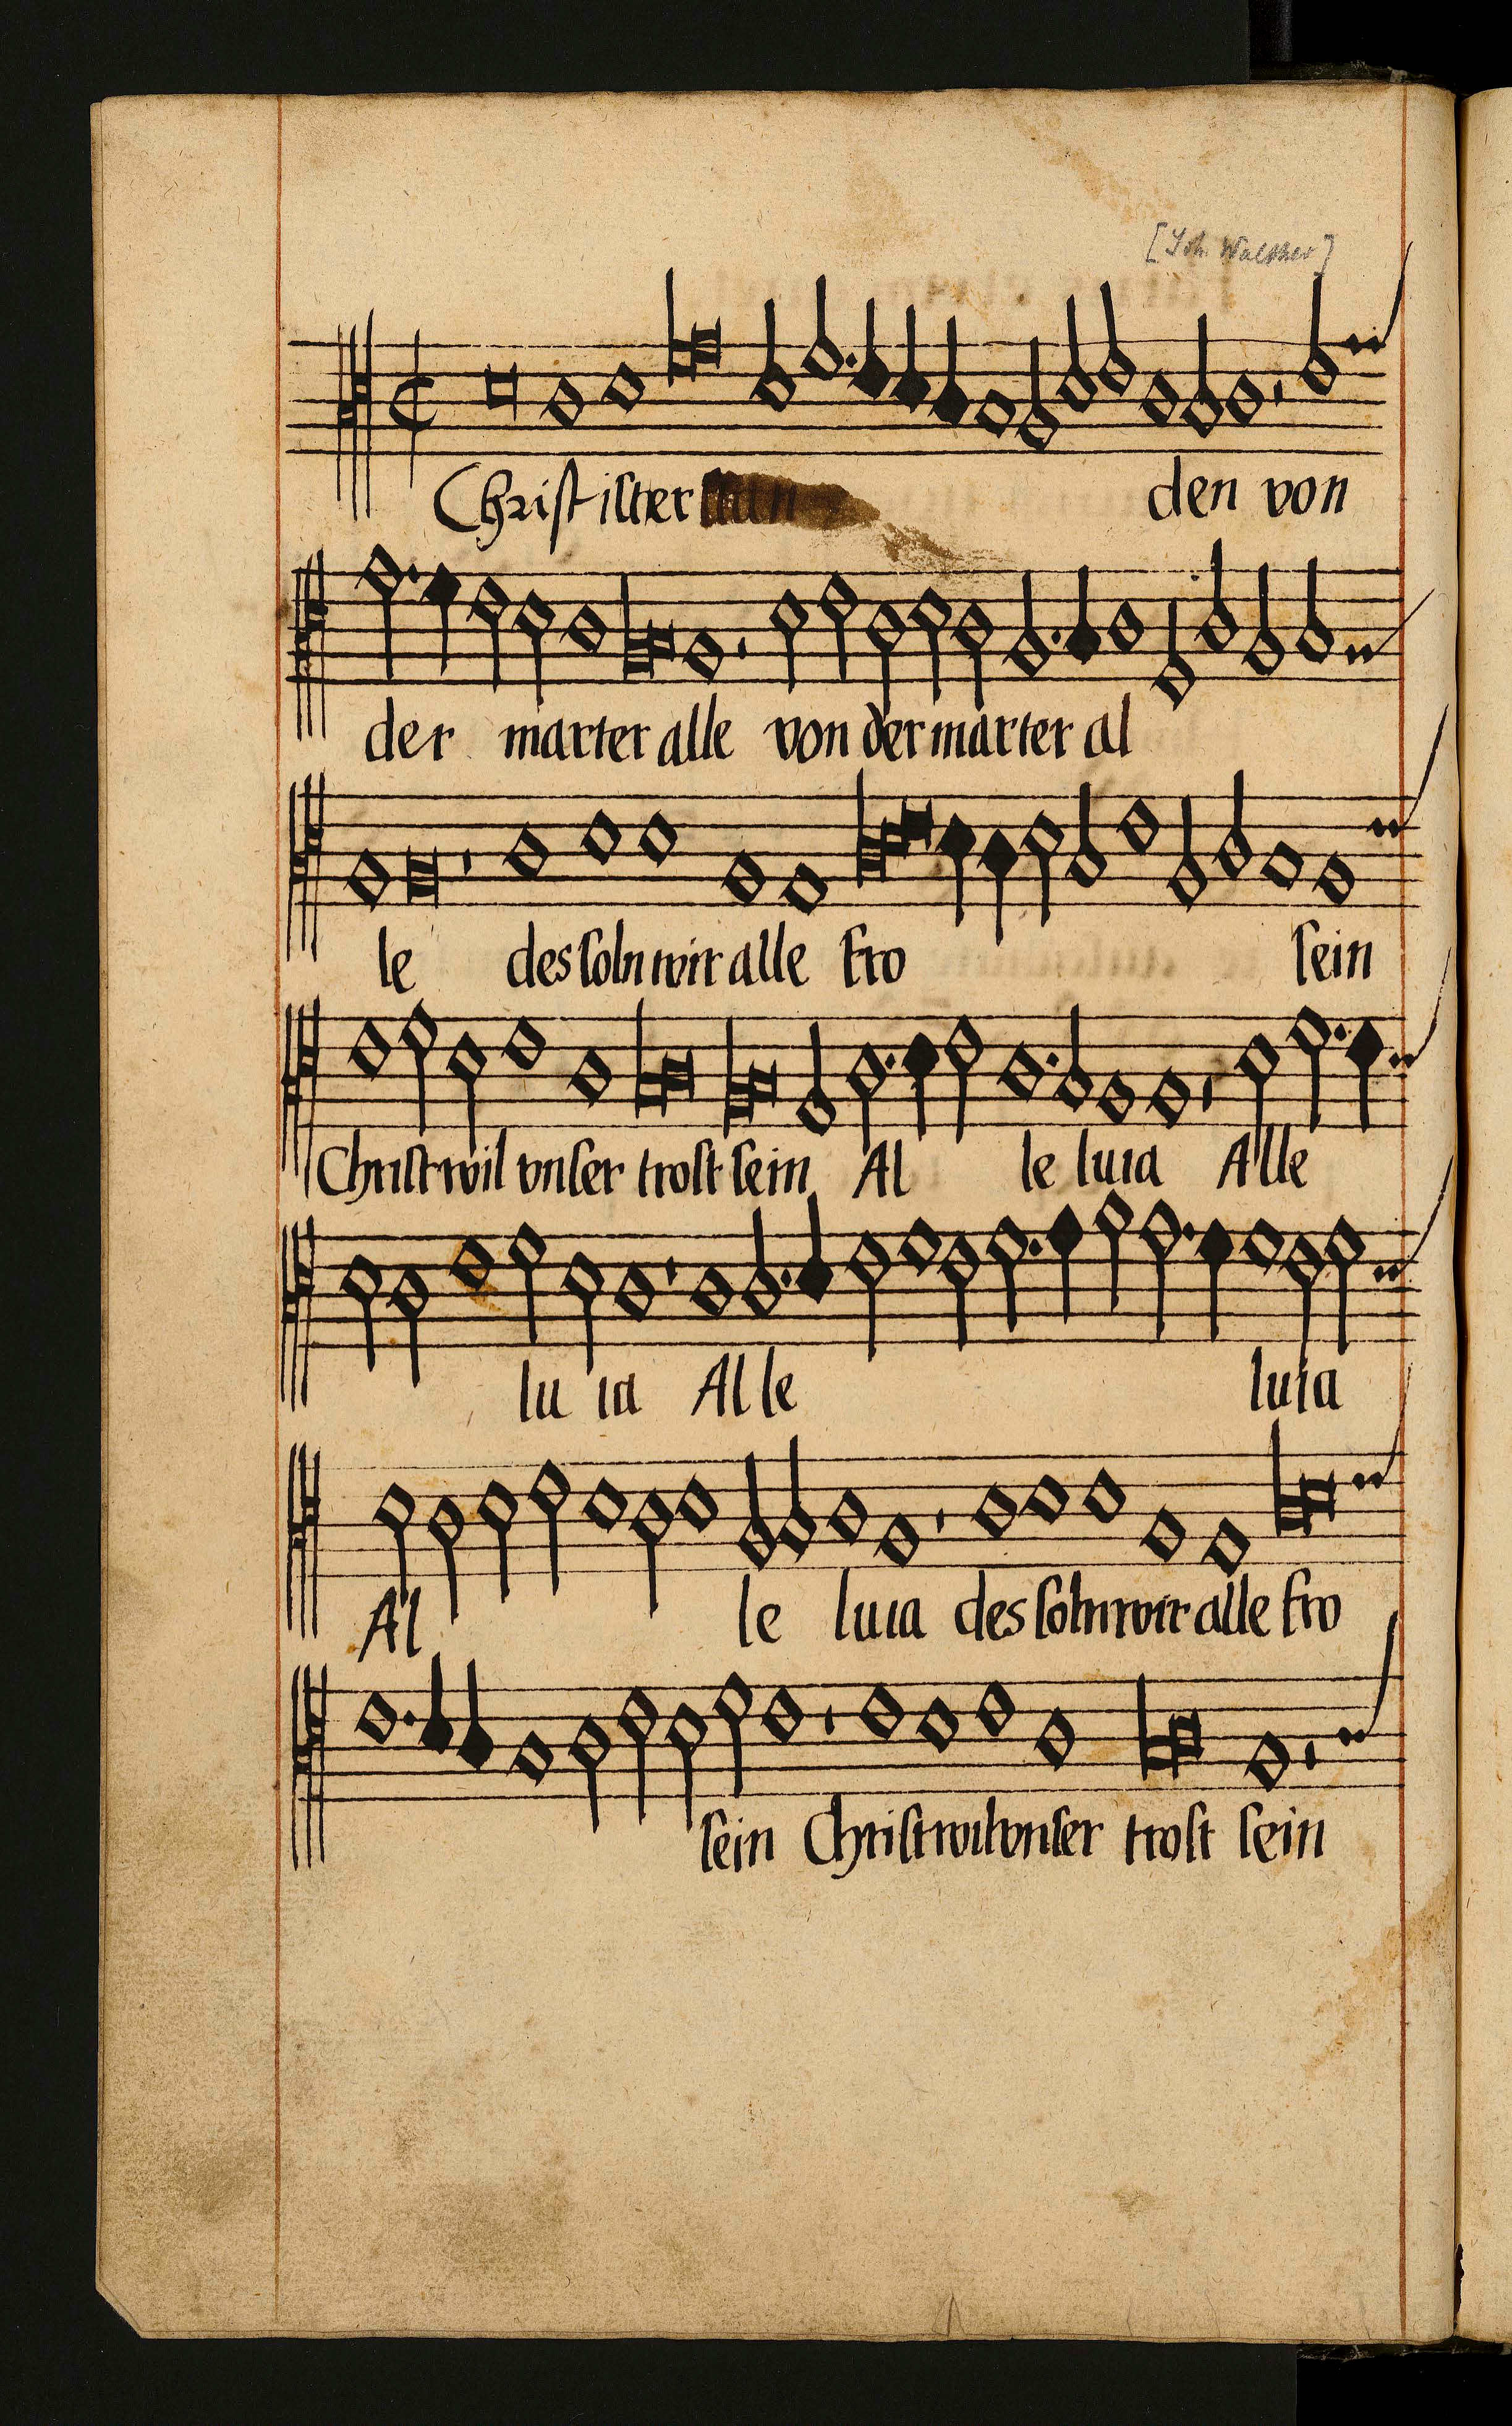 [Joh. Walther]
Christ ist er stan den von
der marter alle von der marter al
le des soln wir alle fro sein
Christ wil vnser trost sein Al le luia Alle
lu ia Al le luia
Al le luia des soln wir alle fro
sein Christ wil vnser trost sein